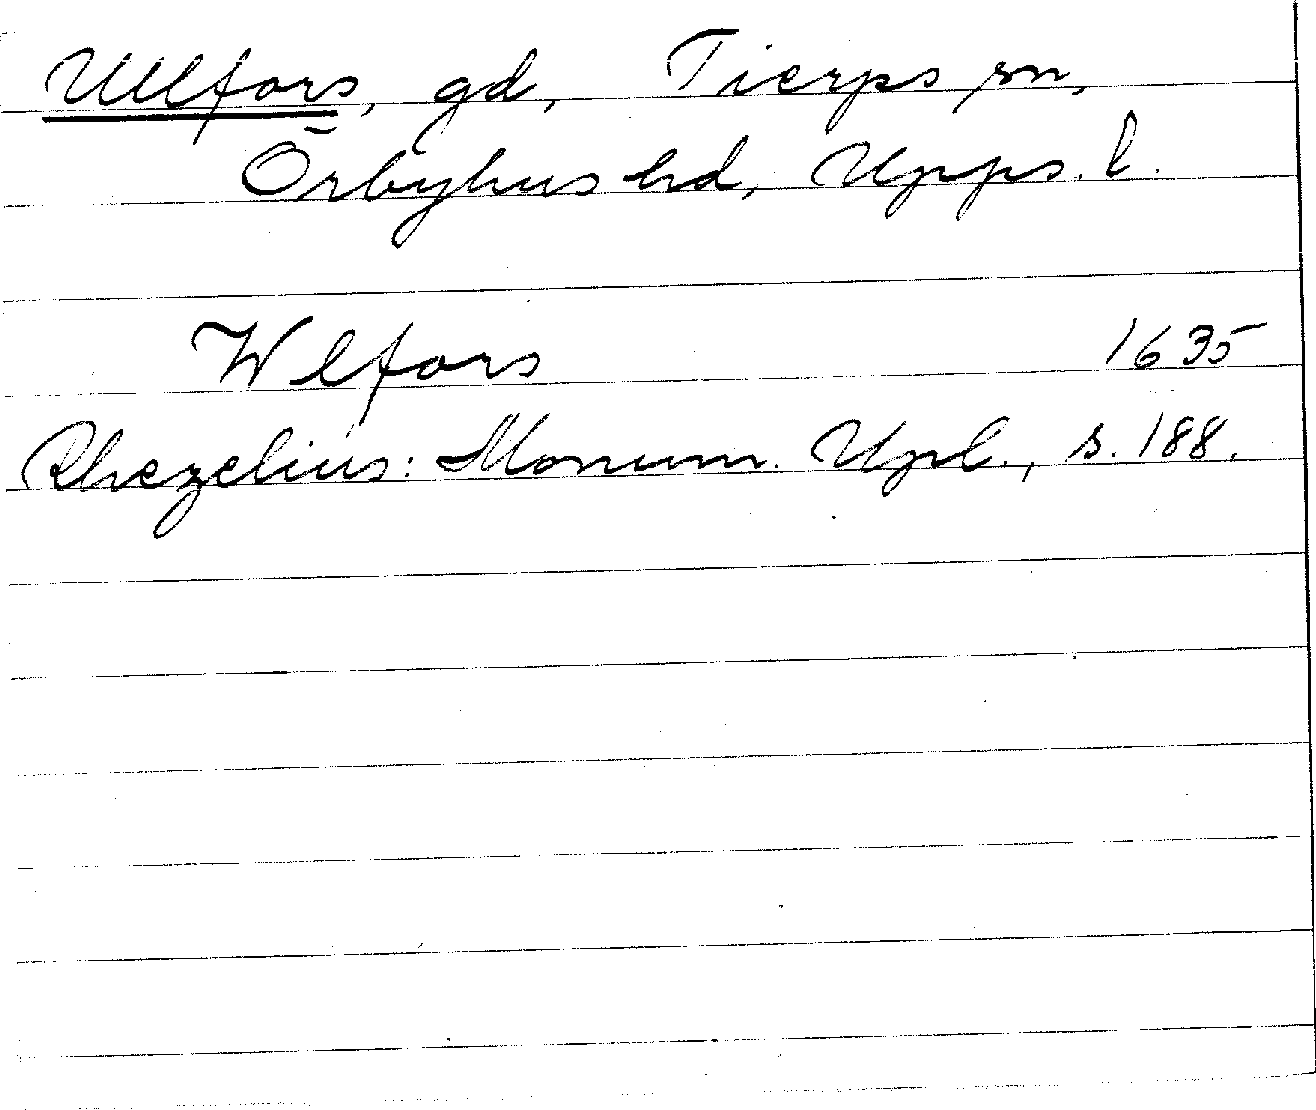 Ullfors, gd, Tierps sn,
Örbyhus hd, Upps. l.
Wlfors 1635
Rhezelius: Monum. Upl., s. 188.